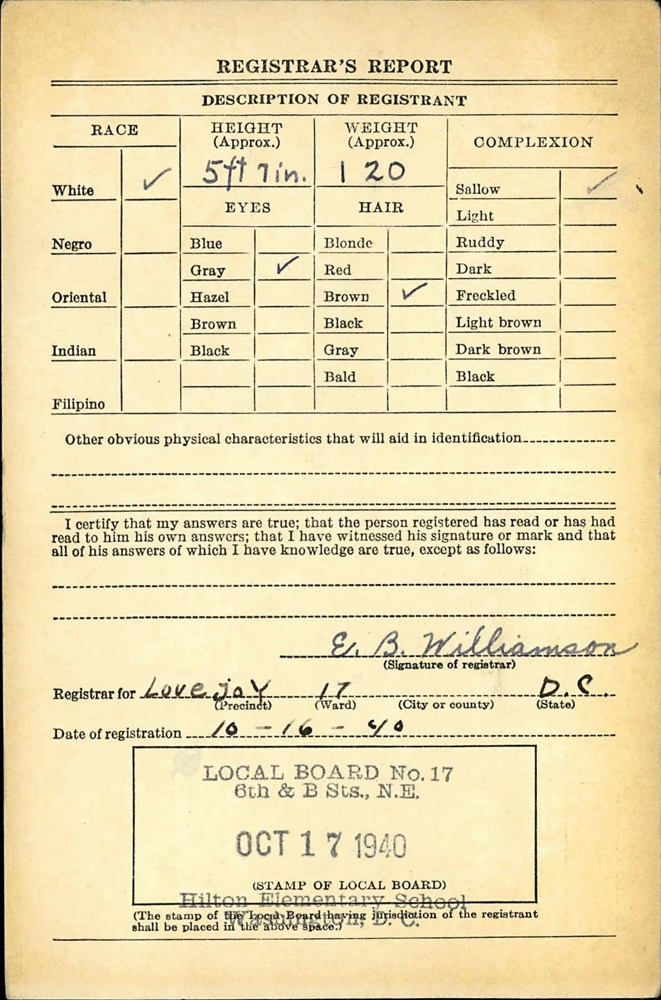 REGISTRAR'S REPORT
DESCRIPTION OF REGISTRANT
RACE
HEIGHT
(Approx.)
WEIGHT
(Approx.)
COMPLEXION
5ft 7in.
120
White ✓
Sallow ✓
EYES
HAIR
Light
Negro
Blue
Blonde
Ruddy
Gray ✓
Red
Dark
Oriental
Hazel
Brown ✓
Freckled
Brown
Black
Light brown
Indian
Black
Gray
Dark brown
Bald
Black
Filipino
Other obvious physical characteristics that will aid in identification
I certify that my answers are true; that the person registered has read or has had
read to him his own answers; that I have witnessed his signature or mark and that
all of his answers of which I have knowledge are true, except as follows:
E. B. Williamson
(Signature of registrar)
Registrar for Lovejoy 17 D.C.
(Precinct) (Ward) (City or county) (State)
Date of registration 10-16-40
LOCAL BOARD No. 17
6th & B Sts., N.E.
OCT 17 1940
(STAMP OF LOCAL BOARD)
Hilton Elementary School
Washington, D. C.
(The stamp of the Local Board having jurisdiction of the registrant
shall be placed in the above space.)